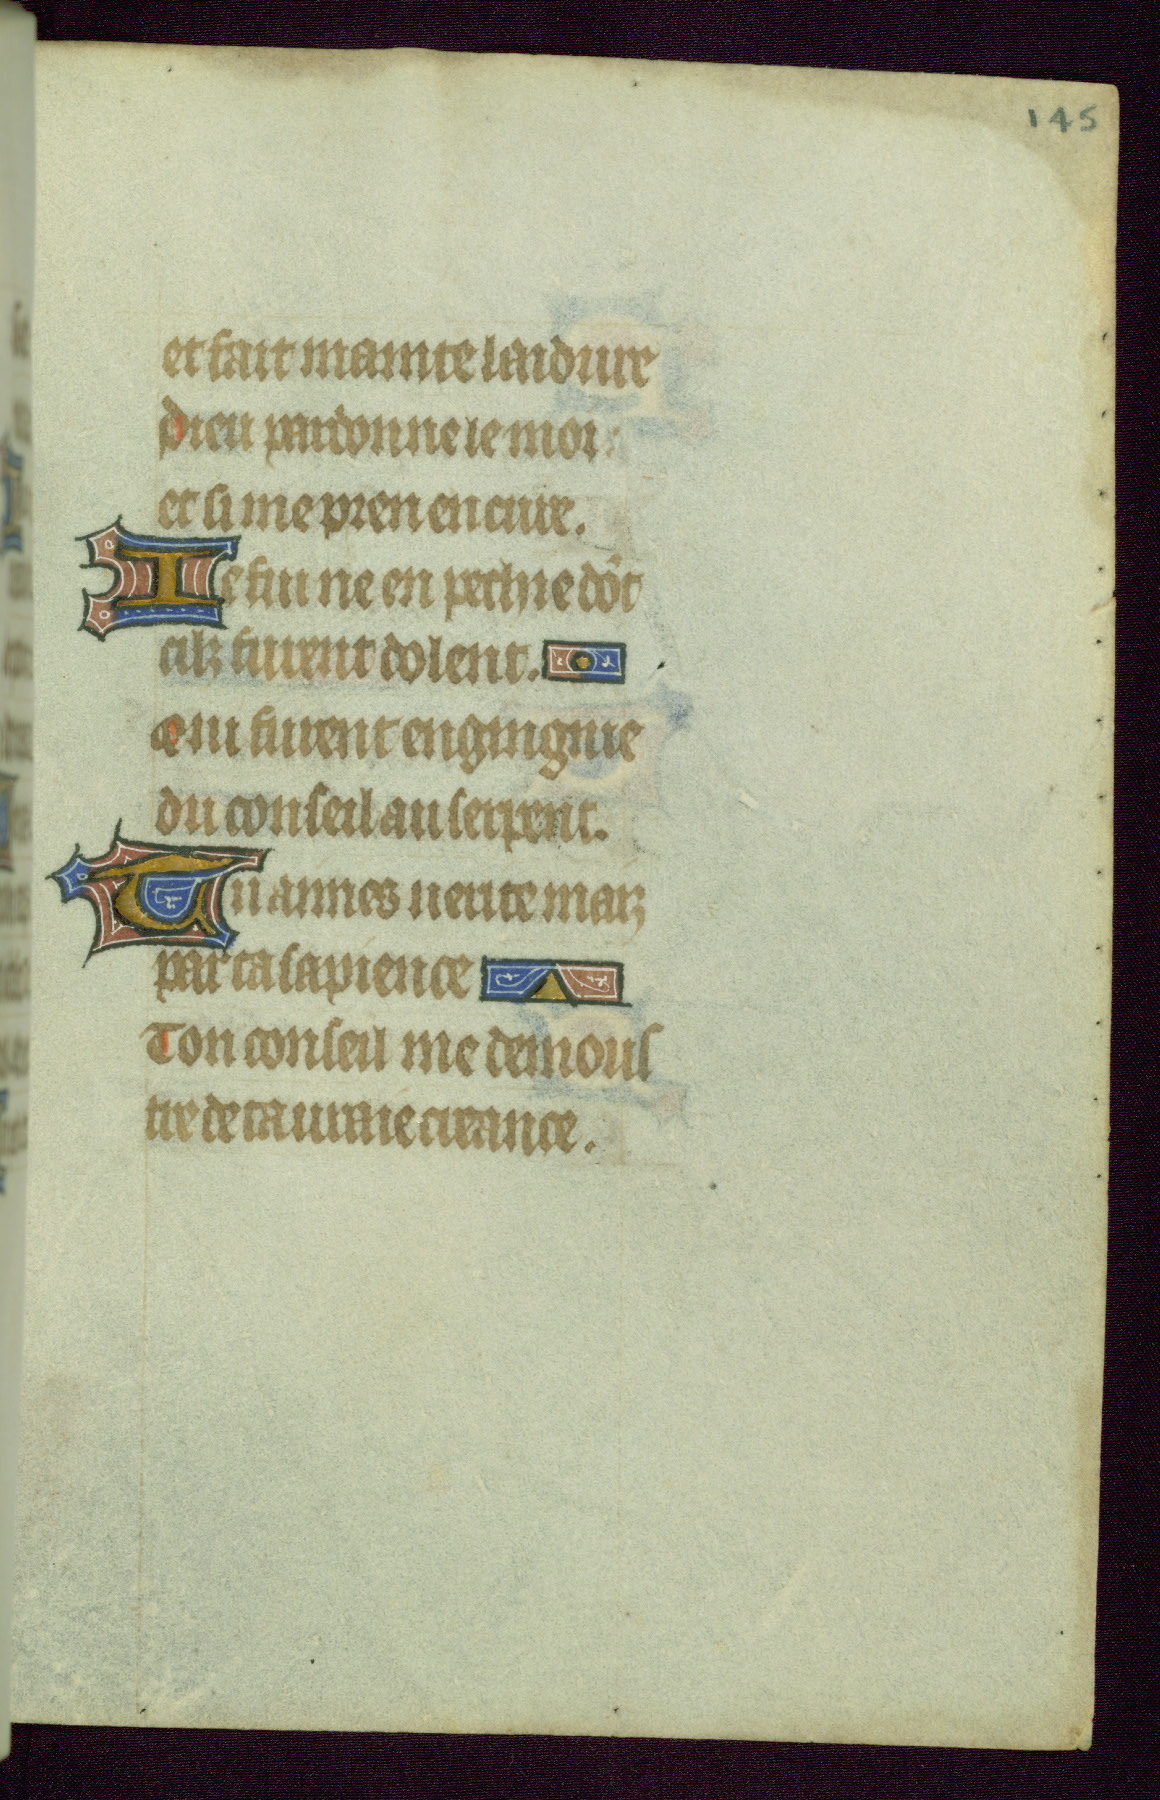 145
et fait mainte laidure
dieu pardonne le moi.
et si me pren en cure.
Ie fui ne en pechie dōt
cilz furent dolent.
Qui furent engingnie
du conseil au serpent.
Tu aimes uerite maiz
par ta sapience
Ton conseil me demous
tre de ta uraie creance.